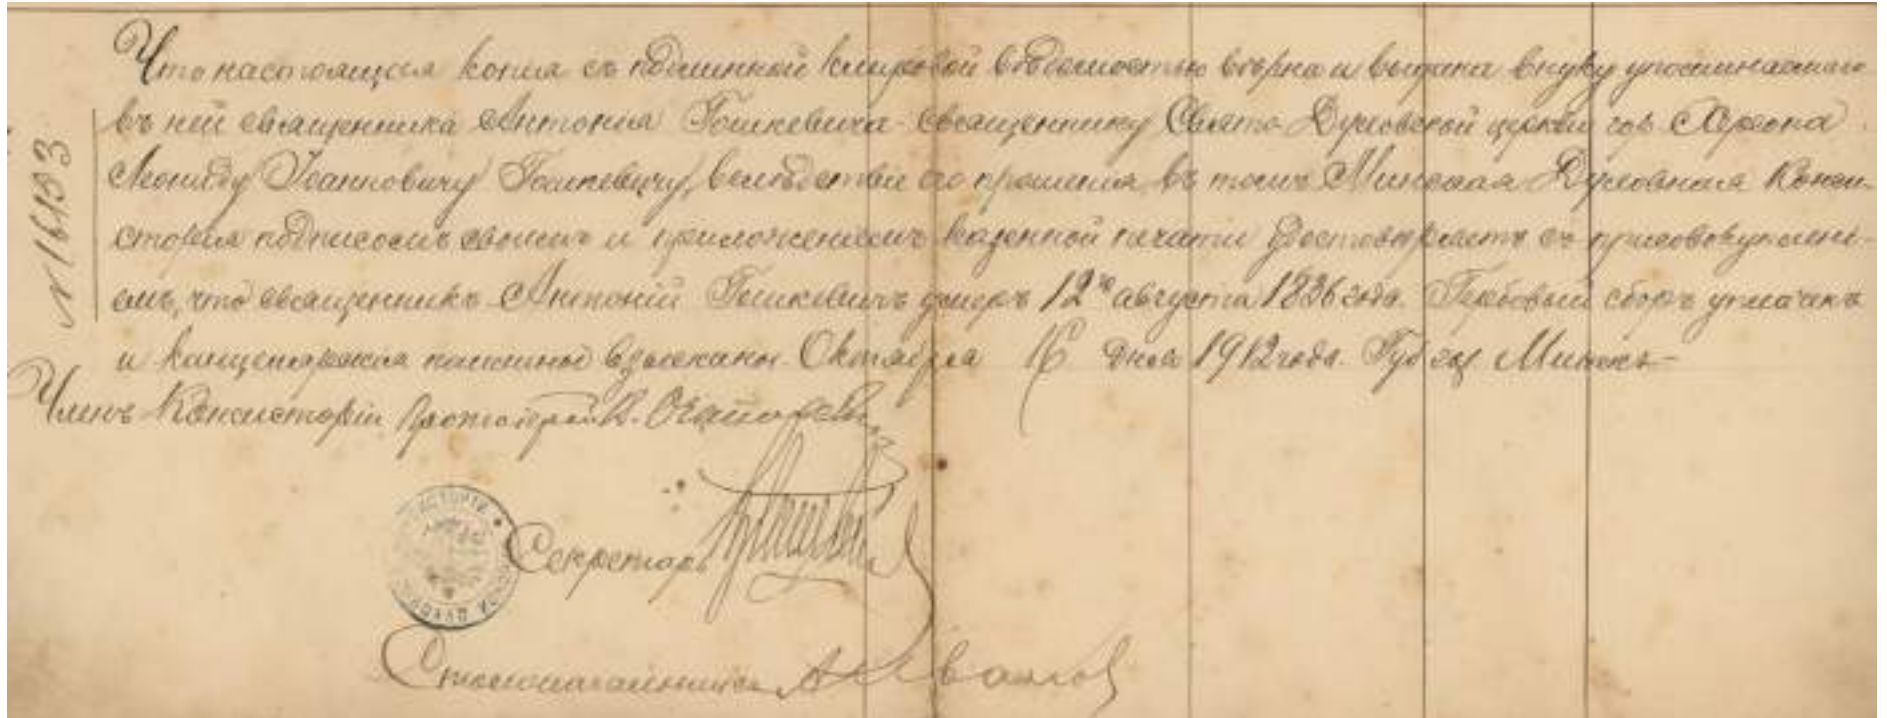 Что настоящая копія съ подлинной клировой вѣдомостью вѣрна и выдана внуку упоминаемаго
въ ней священника Антонія Гошкевича священнику Свято-Духовской церкви гор. Херсона
Леониду Іоанновичу Гошкевичу, вслѣдствіи его прошенія, въ томъ Минская Духовная Конси-
сторія подписомъ своимъ и приложеніемъ казенной печати удостовѣряетъ съ присовокуплені-
емъ, что священникъ Антоній Гошкевичъ умеръ 12го августа 1836 года. Гербовый сборъ уплаченъ
и канцелярскія пошлины взысканы. Октября 16 дня 1912 года. Губ. гор. Минскъ
№ 16153
Членъ Консисторіи Протоіерей
Секретарь
Столоначальникъ